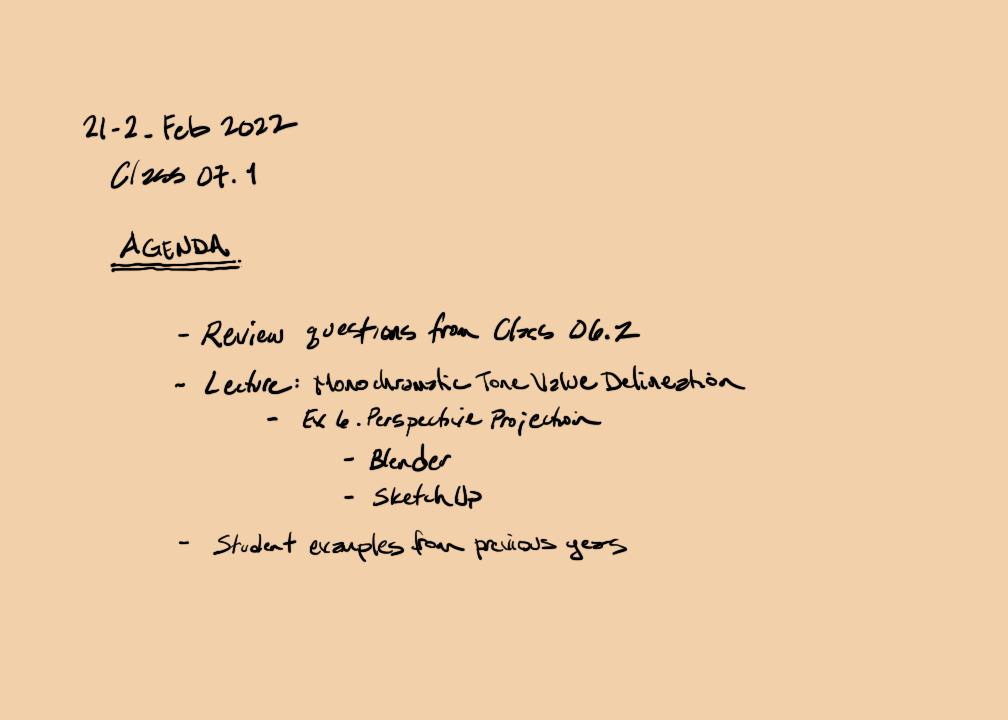 21-2. Feb 2022
Class 07.1
AGENDA
- Review questions from Class 06.2
- Lecture: Monochromatic Tone Value Delineation
- Ex 6. Perspective Projection
- Blender
- SketchUp
- Student examples from previous years